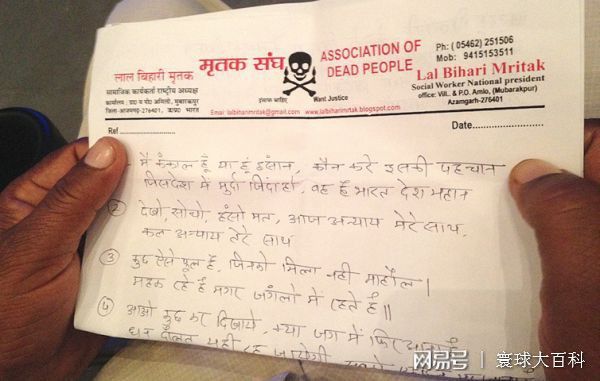 लाल बिहारी मृतक
सामाजिक कार्यकर्ता राष्ट्रीय अध्यक्ष
मृतक संघ
इंसाफ चाहिए
Want Justice
ASSOCIATION OF
DEAD PEOPLE
Ph: (05462) 251506
Mob: 9415153511
Lal Bihari Mritak
Social Worker National president
office: Vill. & P.O. Amlo, (Mubarakpur)
Azamgarh-276401
Email: lalbiharimritak@gmail.com www.lalbiharimritak.blogspot.com
Ref
Date
मैं कंकाल हूँ या हूं इंसान, कौन करे इसकी पहचान
जिस देश में मुर्दा जिंदा हो, वह है भारत देश महान
② देखो, सोचो, हंसो मत, आज अन्याय मेरे साथ,
कल अन्याय तेरे साथ
③ कुछ ऐसे फूल हैं, जिनको मिला नही माहौल।
महक रहे हैं मगर जंगलों में रहते हैं॥
④ आओ कुछ कर दिखाये, क्या जग में फिर
दौलत यही रह जायेगी
网易号 寰球大百科